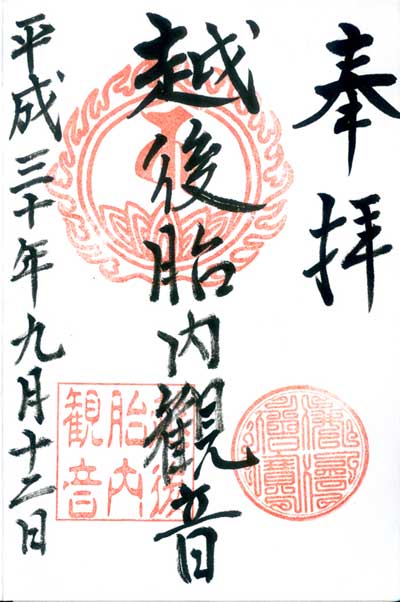 奉拝
越後胎内観音
平成三十年九月十二日
越後
胎内
観音